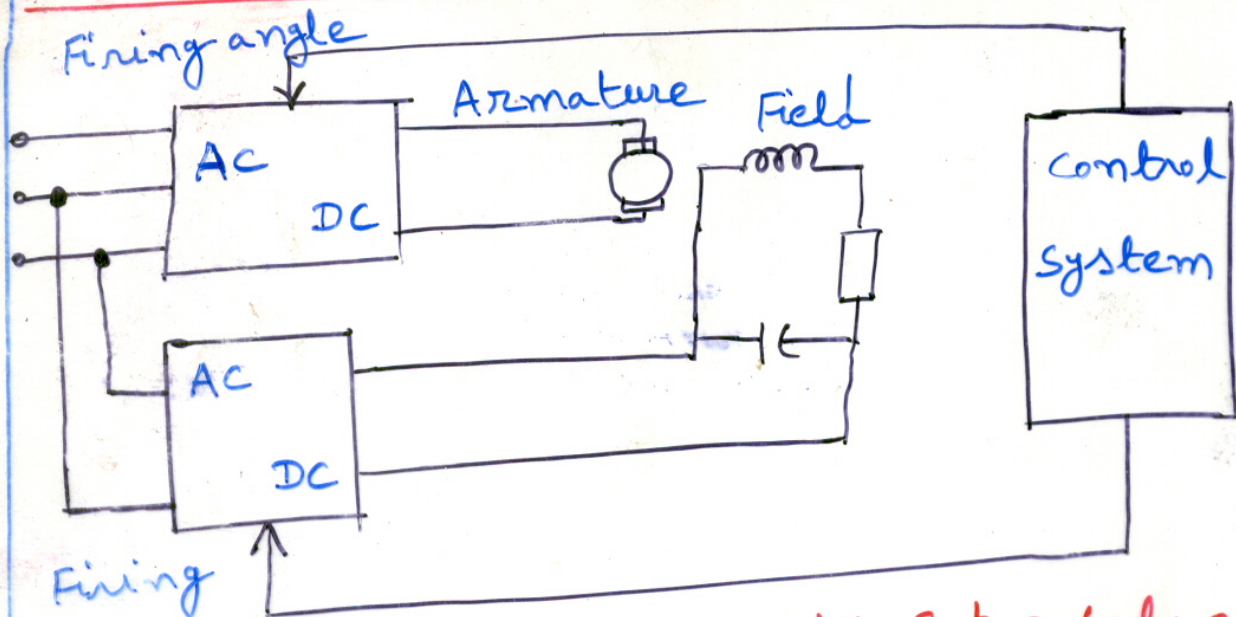 Firing angle
Armature
Field
AC
DC
control
system
AC
DC
Firing